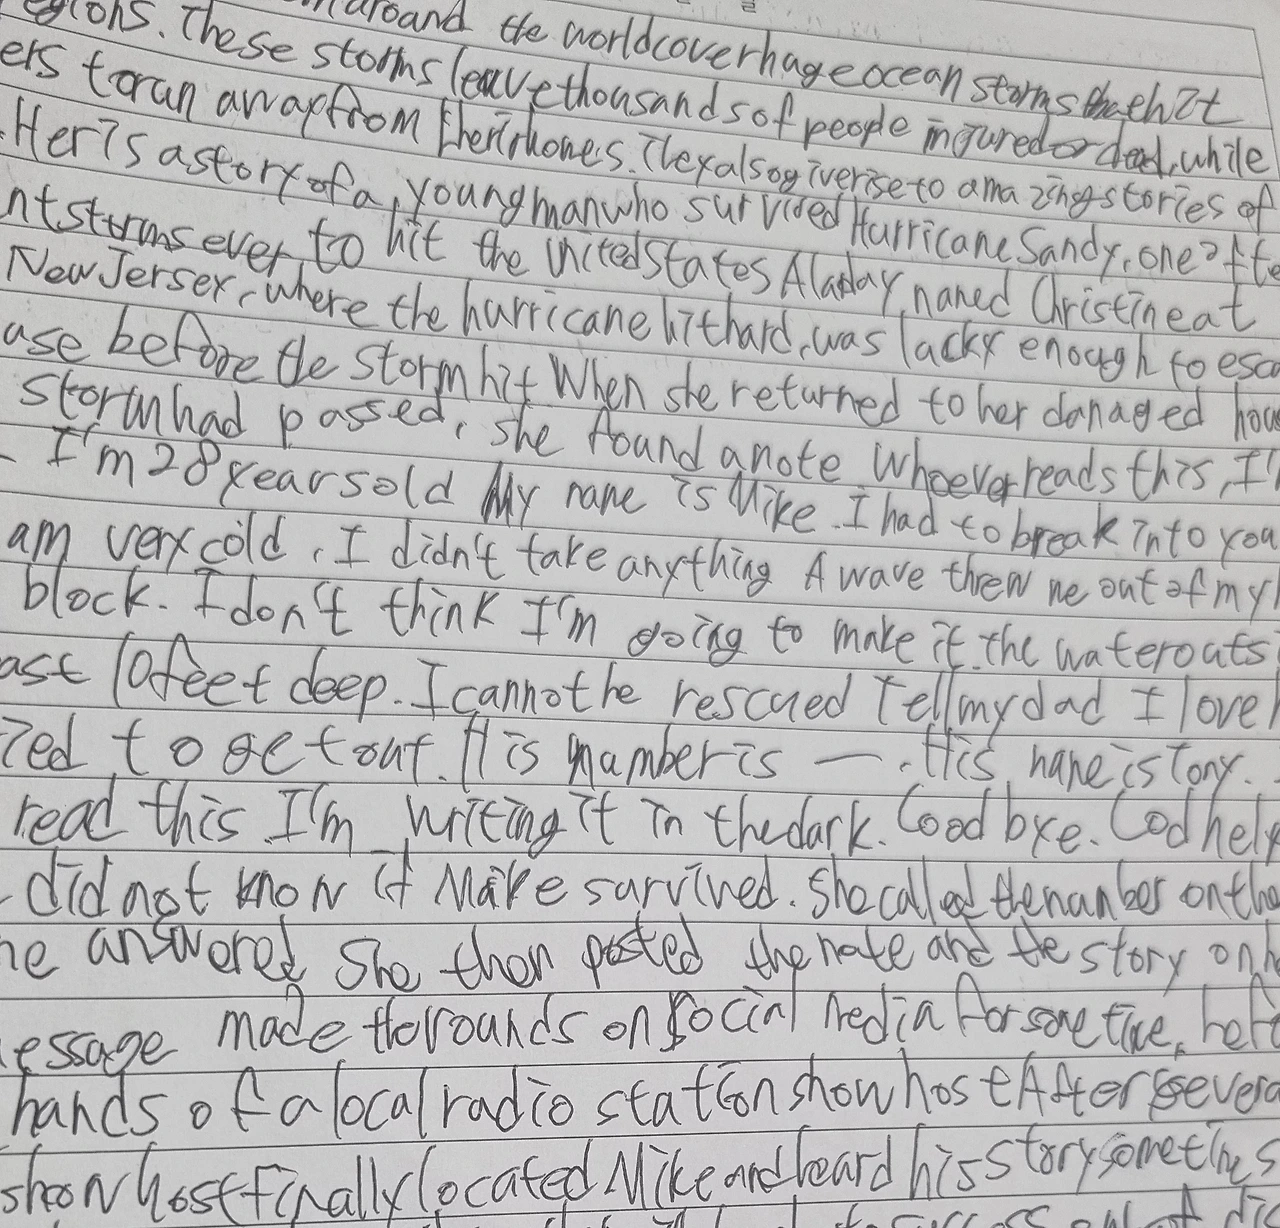 egions. These storms around the world cover huge ocean storms that hit
ers to run away from their homes. They also give rise to amazing stories of
Her is a story of a young man who survived Hurricane Sandy, one of the
nt storms ever to hit the United States A lady named Christine at
New Jersey, where the hurricane hit hard, was lucky enough to esca
use before the storm hit When she returned to her damaged hou
storm had passed, she found a note Whoever reads this, I'
I'm 28 years old My name is Mike. I had to break into you
am very cold. I didn't take anything A wave threw me out of my
block. I don't think I'm going to make it. the water outs
ast 10 feet deep. I can not be rescued Tell my dad I love
ied to get out. His number is —. His name is Tony.
read this I'm writing it in the dark. Good bye. God help
did not know if Mike survived. She called the number on the
ne answered She then posted the note and the story on h
essage made the rounds on social media for some time, bef
hands of a local radio station show host After severa
show host finally located Mike and heard his story sometimes